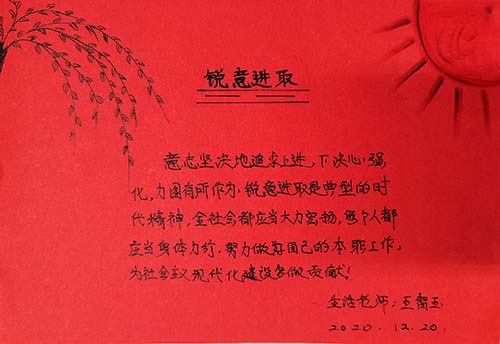 锐意进取
意志坚决地追求上进,下决心强
化,力图有所作为,锐意进取是典型的时
代精神,全社会都应当大力宏扬,每个人都
应当身体力行,努力做好自己的本职工作,
为社会主义现代化建设多做贡献!
生活老师:王
2020.12.20.